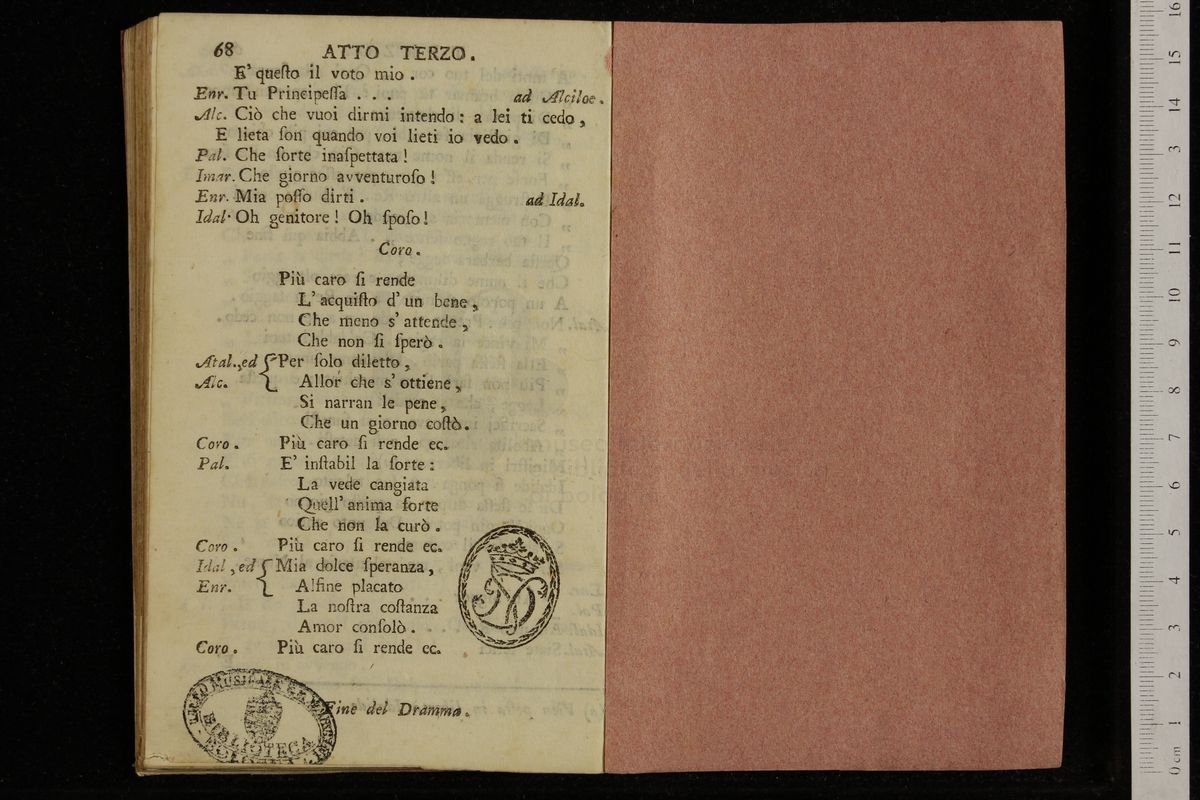 68 ATTO TERZO.
E' queſto il voto mio.
Enr. Tu Principeſſa . . . ad Alciloe.
Alc. Ciò che vuoi dirmi intendo: a lei ti cedo,
E lieta ſon quando voi lieti io vedo.
Pal. Che ſorte inaſpettata!
Imar. Che giorno avventuroſo!
Enr. Mia poſſo dirti. ad Idal.
Idal. Oh genitore! Oh ſpoſo!
Coro.
Più caro ſi rende
L' acquiſto d' un bene,
Che meno s' attende,
Che non ſi ſperò.
Atal., ed { Per ſolo diletto,
Alc. Allor che s' ottiene,
Si narran le pene,
Che un giorno coſtò.
Coro. Più caro ſi rende ec.
Pal. E' inſtabil la ſorte:
La vede cangiata
Quell' anima forte
Che non la curò.
Coro. Più caro ſi rende ec.
Idal, ed { Mia dolce ſperanza,
Enr. Alfine placato
La noſtra coſtanza
Amor conſolò.
Coro. Più caro ſi rende ec.
Fine del Dramma.
LICEO MUSICALE
BIBLIOTECA
BOLOGNA